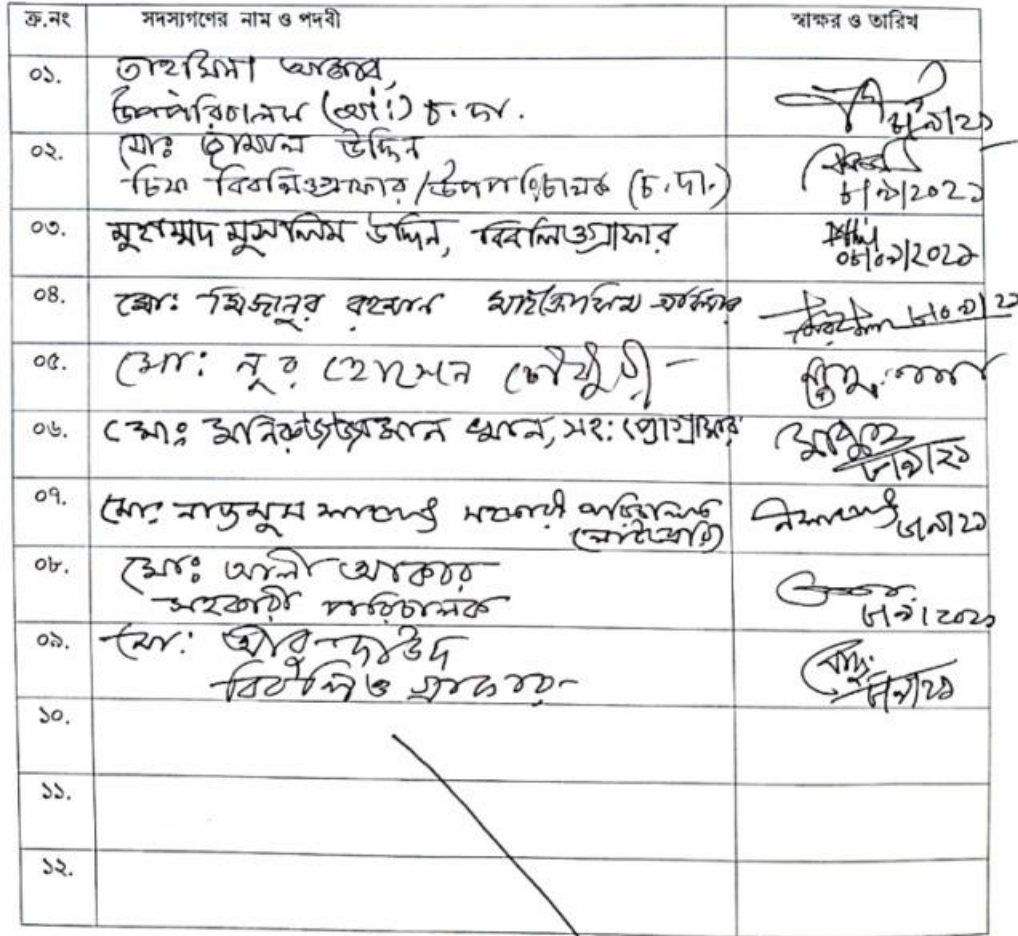 ক্র.নং সদস্যগণের নাম ও পদবী স্বাক্ষর ও তারিখ
০১. তাহমিনা আক্তার,
উপপরিচালক (আঃ) চ.দা. ৮/৯/২১
০২. মোঃ জামাল উদ্দিন
চিফ বিবলিওগ্রাফার/উপপরিচালক (চ.দা.) ৮/৯/2021
০৩. মুহাম্মদ মুসলিম উদ্দিন, বিবলিওগ্রাফার ০৮/০৯/202১
০৪. মো: মিজানুর রহমান মাইক্রোফিল্ম অফিসার ৮/০৯/২১
০৫. মো: নূর হোসেন চৌধুরী
০৬. মোঃ মনিরুজ্জামান খান, সহ: প্রোগ্রামার ৮/৯/২১
০৭. মোঃ নাজমুস সাকাত সহকারী পরিচালক
(লাইব্রেরি) ৮/৯/২১
০৮. মোঃ আলী আকবর
সহকারী পরিচালক ৮/৯/202১
০৯. মো: আবু দাউদ
বিবলিওগ্রাফার ৮/৯/২১
১০.
১১.
১২.